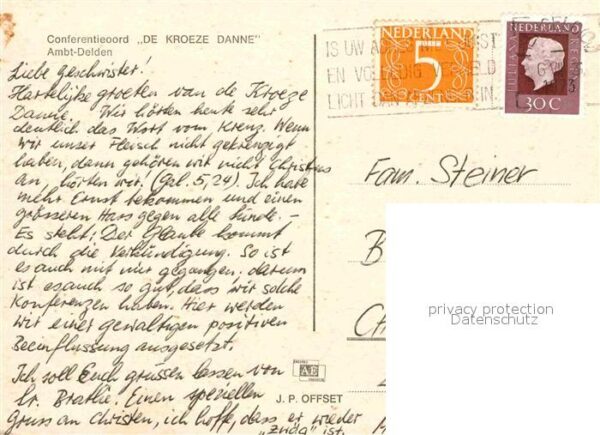 Conferentieoord „DE KROEZE DANNE"
Ambt-Delden
Liebe Geschwister!
Hartelijke groeten van de Kroeze
Danne. Wir hörten heute sehr
deutlich das Wort vom Kreuz. Wenn
wir unser Fleisch nicht gekreuzigt
haben, dann gehören wir nicht Christus
an, hörten wir! (Gal. 5,24). Ich habe
mehr Ernst bekommen und einen
grösseren Hass gegen alle Sünde. –
Es steht: Der Glaube kommt
durch die Verkündigung. So ist
es auch mit mir gegangen, darum
ist es auch so gut, dass wir solche
Konferenzen haben. Hier werden
wir einer gewaltigen positiven
Beeinflussung ausgesetzt.
Ich soll Euch grüssen lassen von
br. Brathe. Einen speziellen
Gruss an Christen, ich hoffe, dass er wieder
ist.
NEDERLAND
5
CENT
NEDERLAND
JULIANA REGINA
30 C
IS UW
EN VOLLEDIG
LICHT DAN
IN.
Fam. Steiner
B
C
privacy protection
Datenschutz
AE
J. P. OFFSET